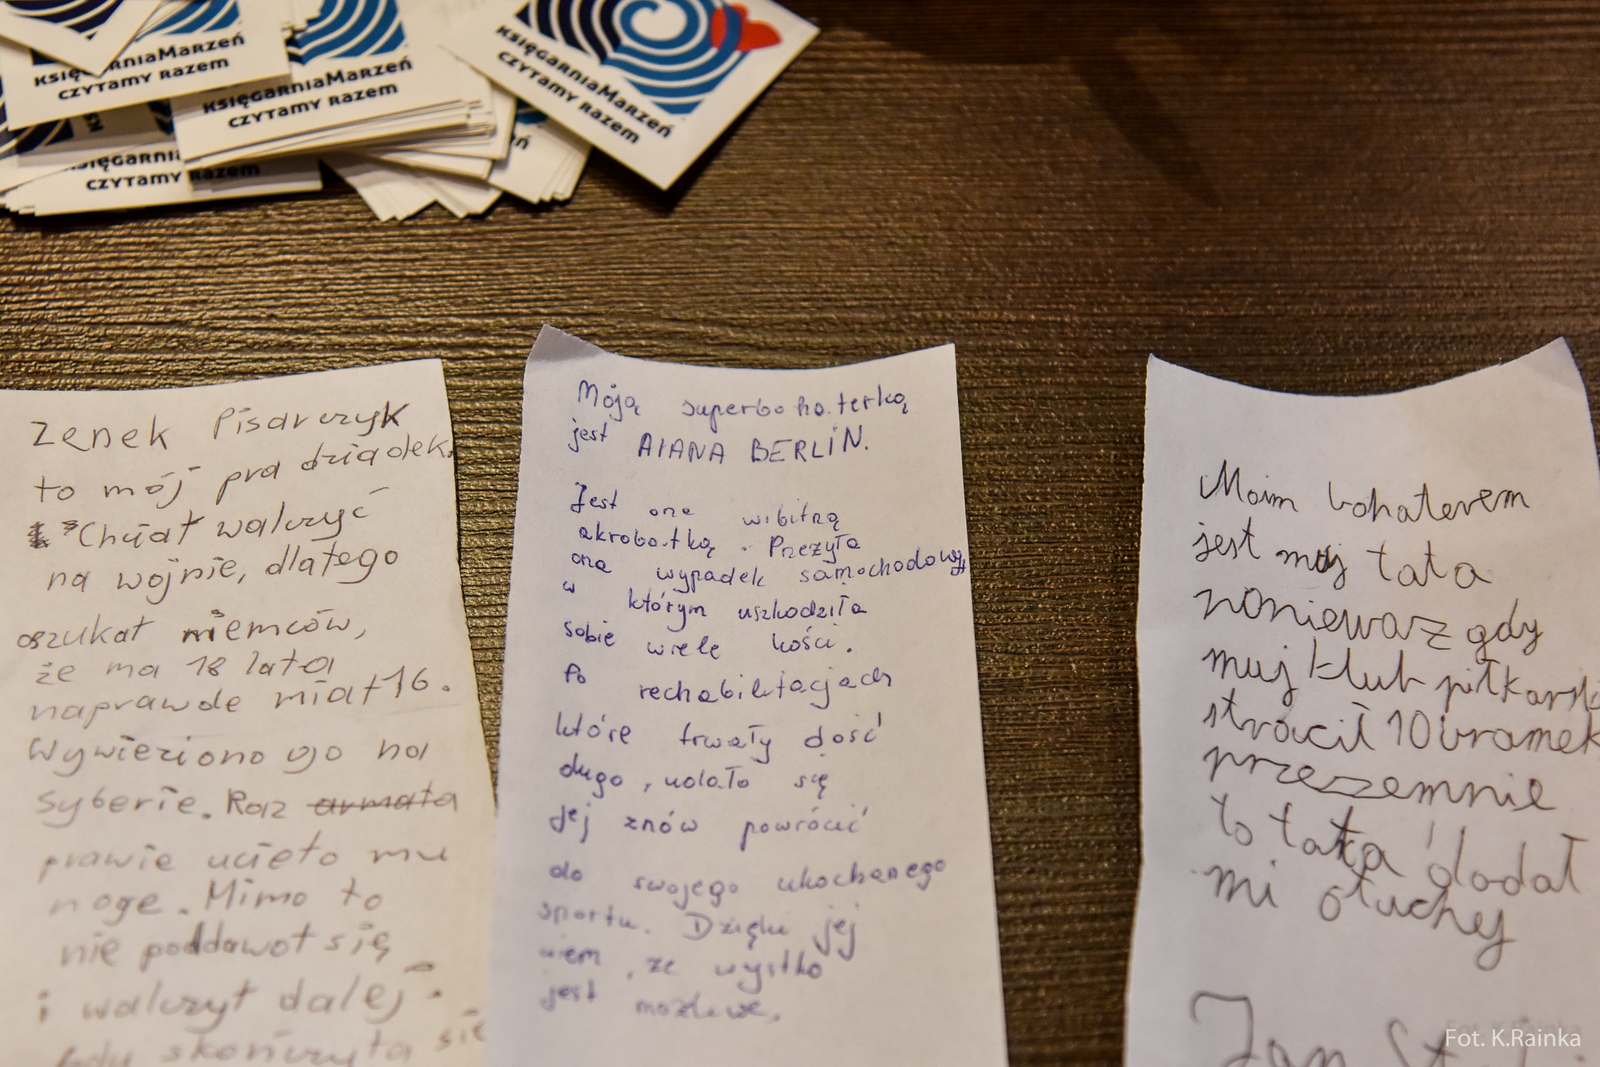 KSIĘGARNIAMARZEŃ
CZYTAMY RAZEM
KSIĘGARNIAMARZEŃ
CZYTAMY RAZEM
KSIĘGARNIAMARZEŃ
CZYTAMY RAZEM
KSIĘGARNI
CZYTAMY RAZEM
Zenek Pisarczyk
to mój pra dziadek.
Chciał walczyć
na wojnie, dlatego
oszukał niemców,
że ma 18 lata
naprawde miał 16.
Wywieziono go na
syberie. Raz armata
prawie ucieło mu
noge. Mimo to
nie poddawał się
i walczył dalej.
skończyła się
Moją superbohaterką
jest AIANA BERLIN.
Jest ona wibitną
akrobatką. Przeżyła
ona wypadek samochodowy
w którym uszkodziła
sobie wiele kości.
Po rechabilitacjach
które trwały dość
długo, udało się
jej znów powrócić
do swojego ukochanego
sportu. Dzięki jej
wiem, że wystko
jest możliwe.
Moim bohaterem
jest muj tata
poniewaz gdy
muj klub piłkarski
stracił 10 bramek
przezemnie
to tata dodał
mi otuchy
Jan
Fot. K.Rainka